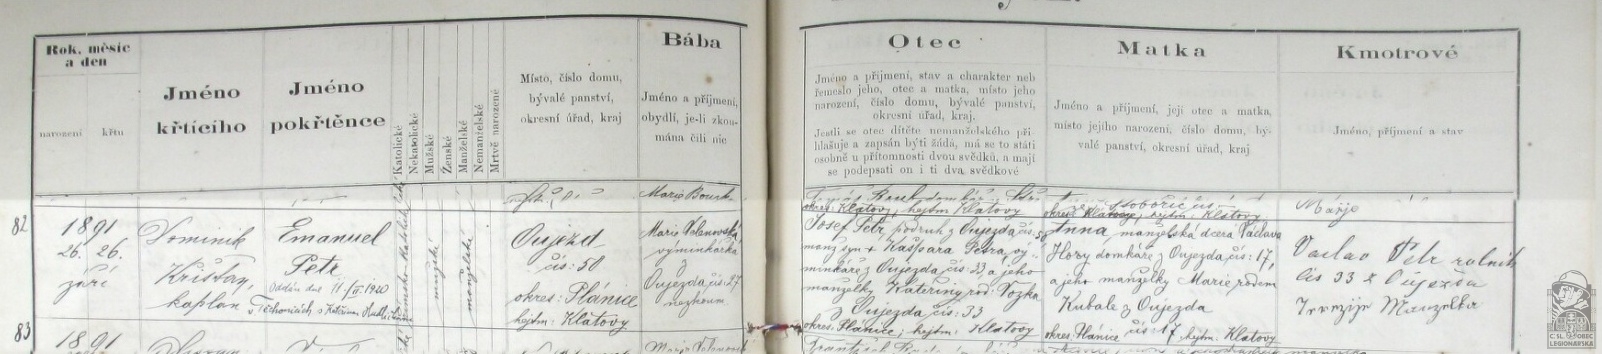 Rok, měsíc
a den
narození
křtu
Jméno
křtícího
Jméno
pokřtěnce
Katolické
Nekatolické
Mužské
Ženské
Manželské
Nemanželské
Mrtvě narozené
Místo, číslo domu,
bývalé panství,
okresní úřad, kraj
Bába
Jméno a příjmení,
obydlí, je-li zkou-
mána čili nic
Otec
Jméno a příjmení, stav a charakter neb
řemeslo jeho, otec a matka, místo jeho
narození, číslo domu, bývalé panství,
okresní úřad, kraj.
Jestli se otec dítěte nemanželského při-
hlašuje a zapsán býti žádá, má se to státi
osobně u přítomnosti dvou svědků, a mají
se podepsati on i ti dva svědkové
Matka
Jméno a příjmení, její otec a matka,
místo jejího narození, číslo domu, bý-
valé panství, okresní úřad, kraj
Kmotrové
Jméno, příjmení a stav
okres: Klatovy, hejtm: Klatovy
okres: Klatovy, hejtm: Klatovy
82
1891
26. 26.
září
Dominik
Krištan,
kaplan
Emanuel
Petr
Oddán dne 11/II. 1920
v Těchonicích s Kateřinou
římsko-katolické
mužské
manželské
Oujezd
čís: 50
okres: Plánice
hejtm: Klatovy
Marie
výminkářka
z
Oujezda čís: 27
nezkoum.
Josef Petr, podruh z Oujezda čís: 50
manž. syn + Kašpara Petra, vý-
minkáře z Oujezda čís: 22 a jeho
manželky Kateřiny roz: Vozka
z Oujezda čís: 33
okres: Plánice, hejtm: Klatovy
Anna manželská dcera Václava
Hory domkáře z Oujezda čís: 17,
a jeho manželky Marie rodem
Kubale z Oujezda
čís: 17
okres: Plánice hejtm: Klatovy
Václav Petr rolník
čís 33 z Oujezda
manželka
83
1891
ČS. OBEC
LEGIONÁŘSKÁ